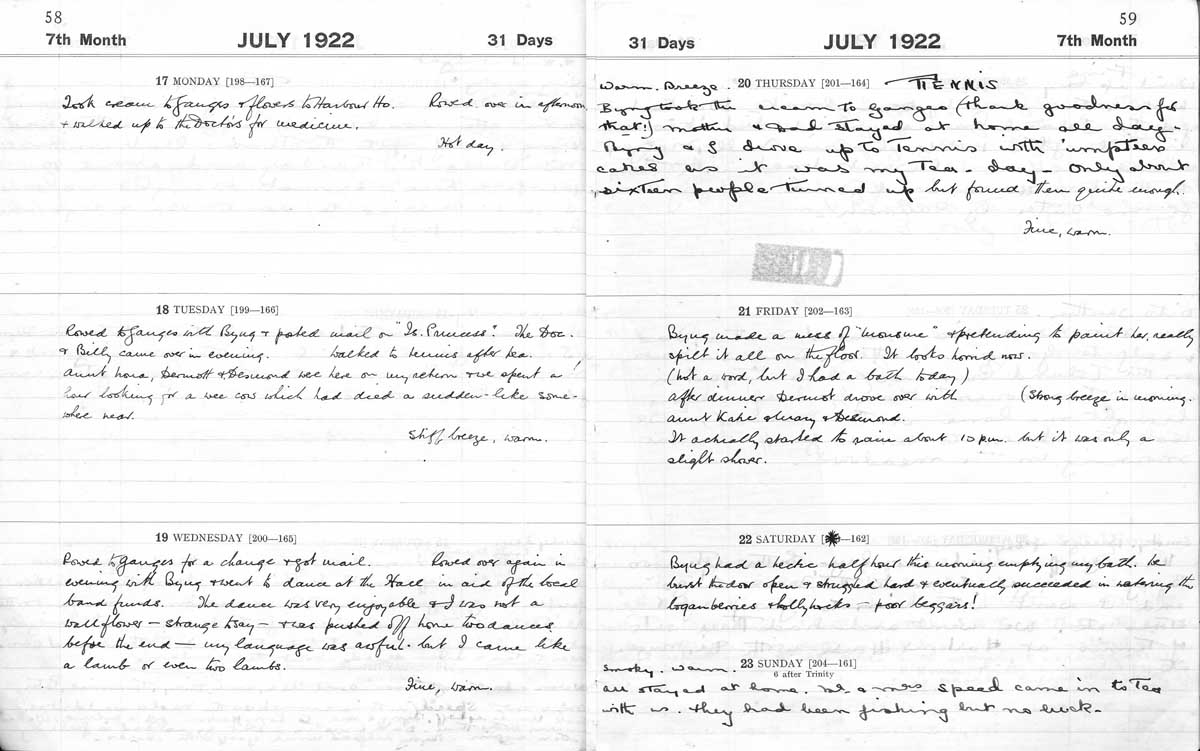 58
7th Month JULY 1922 31 Days
17 MONDAY [198—167]
Took cream to Ganges & flowers to Harbour Ho. Rowed over in afternoon
& walked up to the Doctor's for medicine.
Hot day.
18 TUESDAY [199—166]
Rowed to Ganges with Byng & posted mail on "Is. Princess". The Doc.
& Billy came over in evening. Walked to tennis after tea.
Aunt Nora, Dermott & Desmond wee here on my return & we spent a
hour looking for a wee cow which had died a sudden-like some-
where near.
Stiff breeze, warm.
19 WEDNESDAY [200—165]
Rowed to Ganges for a change & got mail. Rowed over again in
evening with Byng & went to dance at the Hall in aid of the local
band funds. The dance was very enjoyable & I was not a
wall flower — strange to say — & was pushed off home two dances
before the end — my language was awful. but I came like
a lamb or even two lambs.
Fine, warm.
59
31 Days JULY 1922 7th Month
Warm. Breeze. 20 THURSDAY [201—164] TENNIS
Byng took the cream to Ganges (thank goodness for
that!) mother & Dad stayed at home all day-
Byng & I drove up to Tennis with umpteen
cakes as it was my Tea-day- only about
sixteen people turned up but found them quite enough.
Fine, warm.
21 FRIDAY [202—163]
Byng made a mess of & pretending to paint her, really
spilt it all on the floor. It looks horrid now.
(not a word, but I had a bath today)
after dinner Dermot drove over with (Strong breeze in morning.
Aunt Katie & Mary & Desmond.
It actually started to rain about 10 p.m. but it was only a
slight shower.
22 SATURDAY [—162]
Byng had a hectic half hour this morning emptying my bath. he
burst the door open & struggled hard & eventually succeeded in watering the
loganberries & hollyhocks — poor beggars!
Smoky. Warm. 23 SUNDAY [204—161]
6 after Trinity
all stayed at home. Mr & Mrs Speed came in to Tea
with us. they had been fishing but no luck-